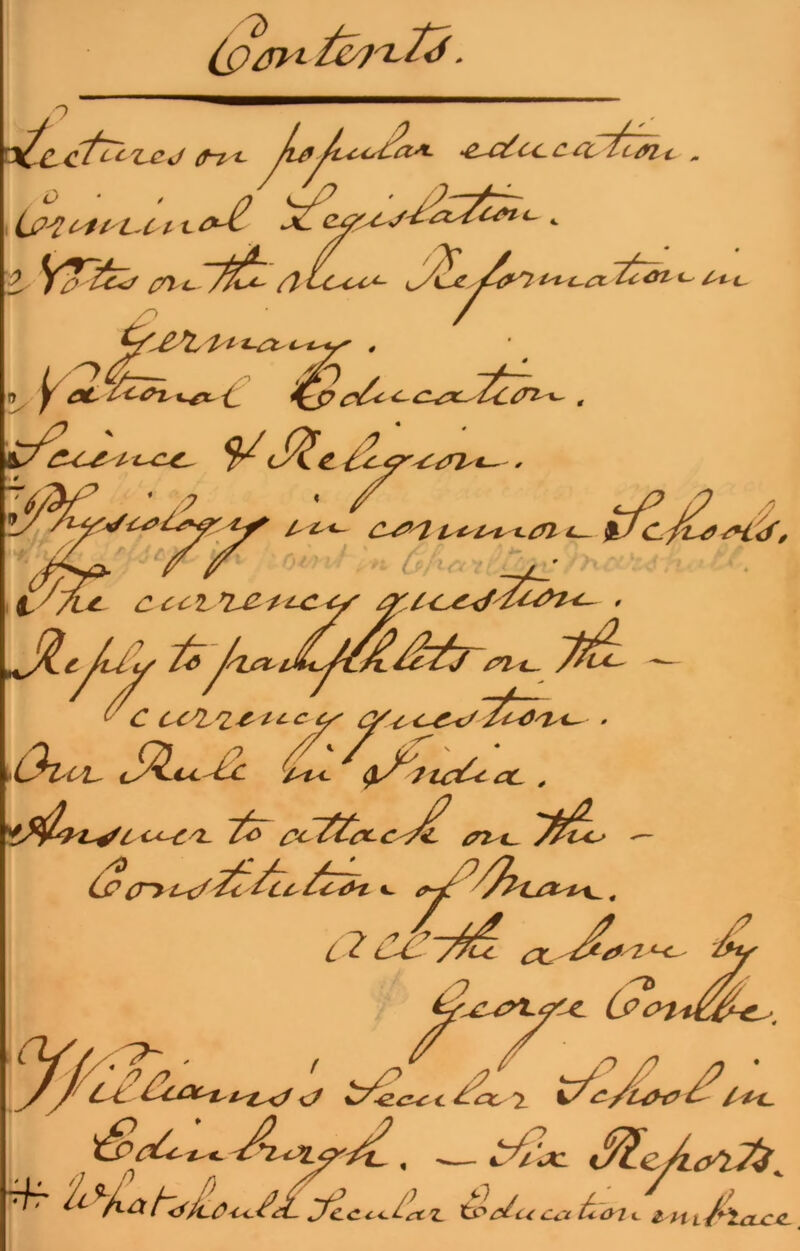 Contents.
Lectures on popular education.
Criminal Legislation.
Notes on the New Reformation in
Germany.
National Education.
Science & Religion.
Physiology in common Schools.
The currency question.
Reply to pamphlets on the —
currency question.
Our Rule in India.
Answer to attack on the —
Constitution of Man.
All the above by
George Combe.
Williams's Secular School in
Edinburgh. — Six Reports.
What should Secular Education embrace.